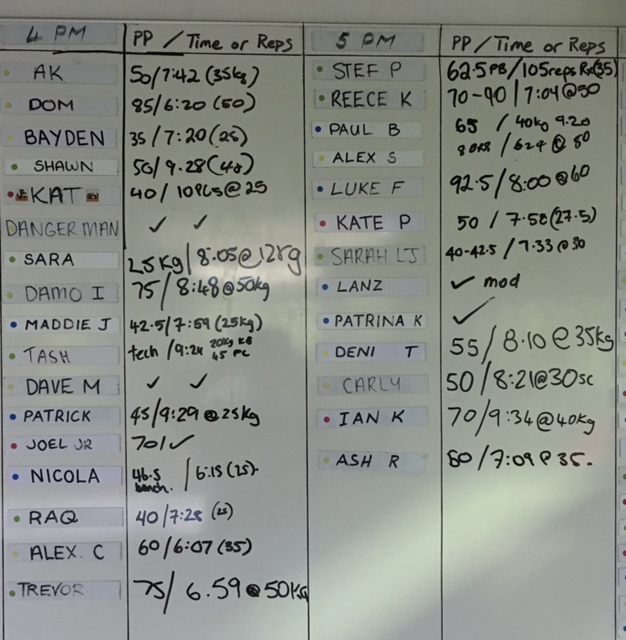 4 PM PP / Time or Reps
AK 50/7:42 (35kg)
DOM 85/6:20 (50)
BAYDEN 35/7:20 (25)
SHAWN 50/9.28 (40)
KAT 40/10 @ 25
DANGERMAN ✓ ✓
SARA 25kg/8:05@12kg
DAMO I 75/8:48@50kg
MADDIE J 42.5/7:59 (25kg)
TASH tech/9:24 20kg KB
45 PC
DAVE M ✓ ✓
PATRICK 45/9:29 @ 25kg
JOEL JR 70/✓
NICOLA 46.5 bench. /6:15 (25)
RAQ 40/7:28 (25)
ALEX. C 60/6:07 (35)
TREVOR 75/6.59@50kg
5 PM PP / Time or Reps
STEF P 62.5 PB/105reps Rx(35)
REECE K 70-90/7:04@50
PAUL B 65 / 40kg 9.20
ALEX S /624 @
LUKE F 92.5/8:00@60
KATE P 50/7.58(27.5)
SARAH LJ 40-42.5/7.33@30
LANZ ✓ mod
PATRINA K ✓
DENI T 55/8.10@35kg
CARLY 50/8:21@30sc
IAN K 70/9:34@40kg
ASH R 80/7:09@35.